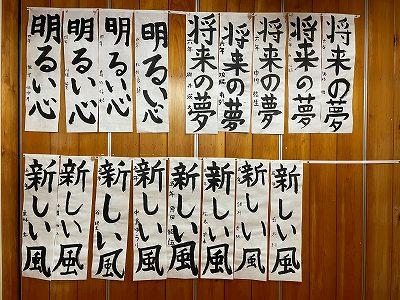 将来の夢
将来の夢
将来の夢
将来の夢
将来の夢
明るい心
明るい心
明るい心
明るい心
新しい風
新しい風
新しい風
新しい風
新しい風
新しい風
新しい風
新しい風